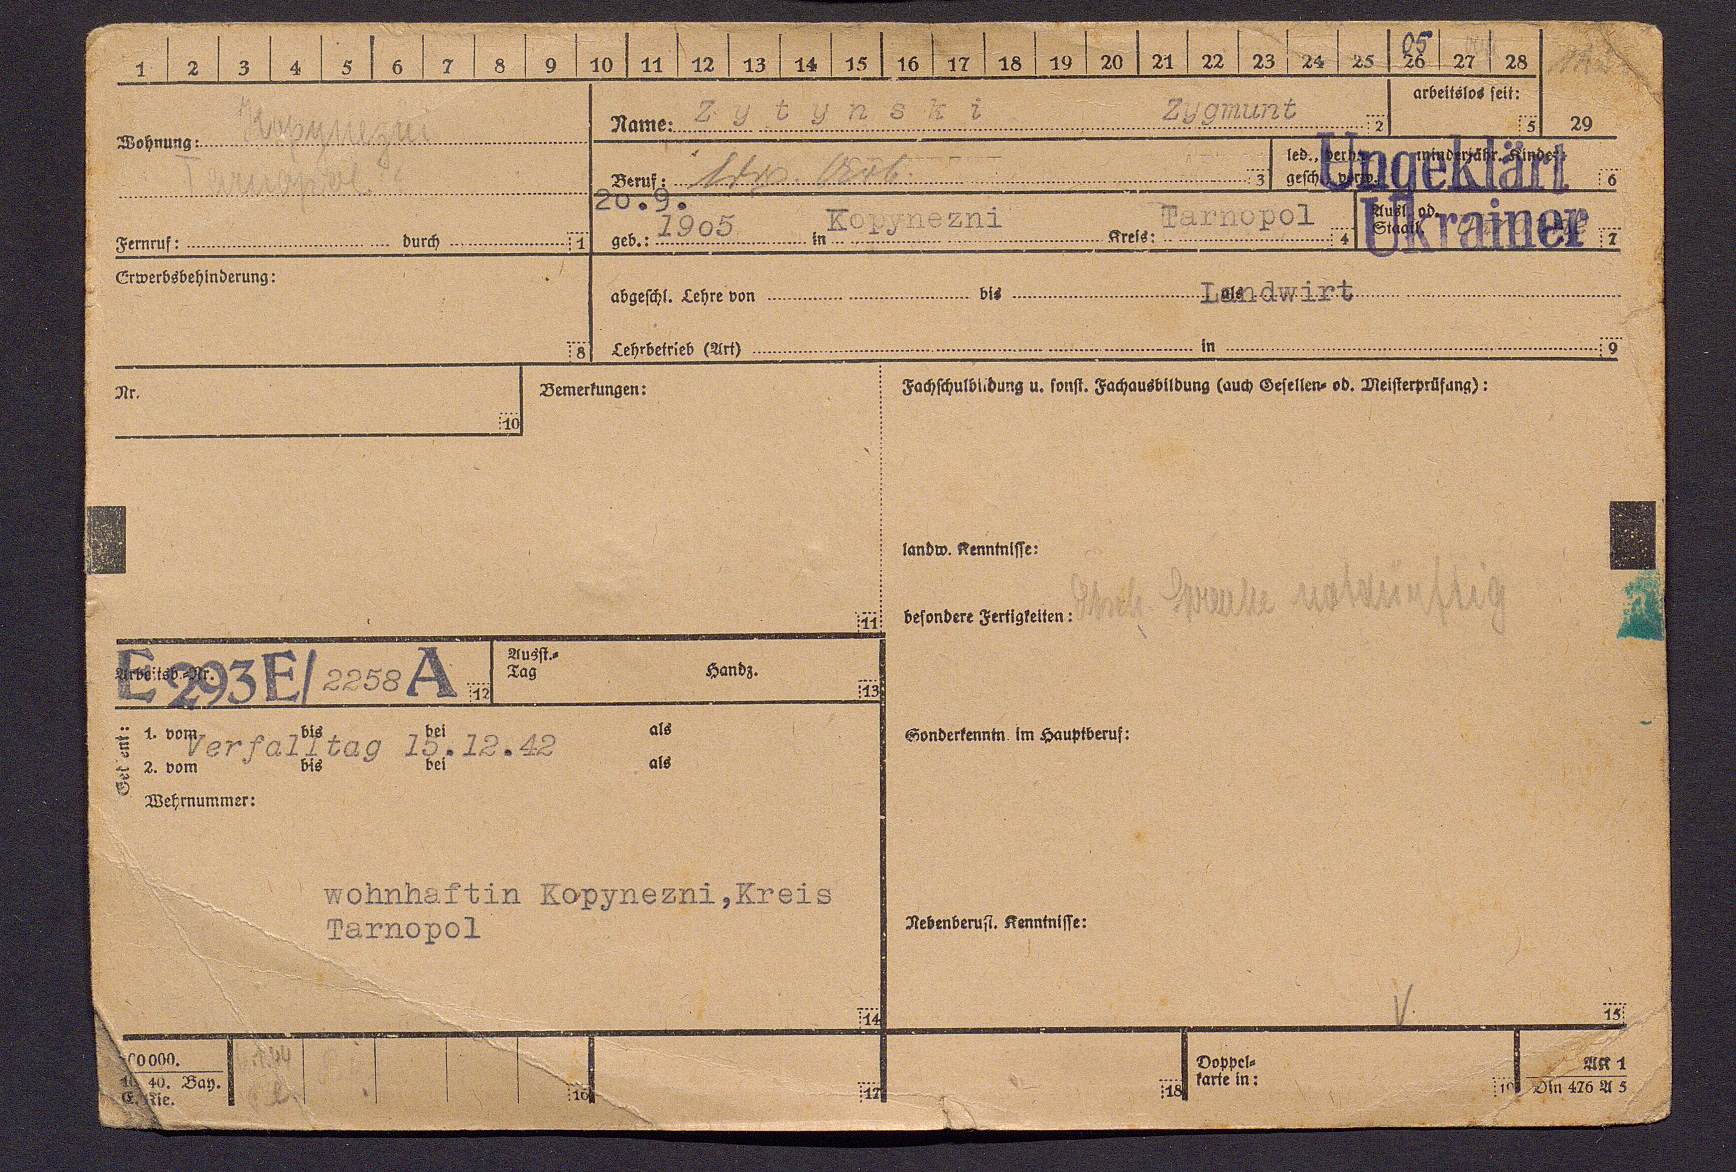 1 2 3 4 5 6 7 8 9 10 11 12 13 14 15 16 17 18 19 20 21 22 23 24 25 26 27 28
05
Wohnung: Kopynezni
Tarnopol
Fernruf: durch 1
Name: Zytynski Zygmunt 2
arbeitslos seit: 5
29
Beruf: 3
led., verh., minderjähr. Kinder:
gesch., verw. 6
Ungeklärt
Ukrainer
20.9.
geb.: 1905 in Kopynezni Kreis: Tarnopol 4
Ausl. od.
Staatl. 7
Erwerbsbehinderung:
8
abgeschl. Lehre von bis als Landwirt
Lehrbetrieb (Art) in 9
Nr.
10
Bemerkungen:
11
Fachschulbildung u. sonst. Fachausbildung (auch Gesellen- od. Meisterprüfung):
landw. Kenntnisse:
besondere Fertigkeiten: notdürftig
Sonderkenntn. im Hauptberuf:
Nebenberufl. Kenntnisse:
V
15
Arbeitsb.-Nr. E 293 E/2258 A 12
Ausst.-
Tag Handz. 13
Gedient:
1. vom bis bei als
Verfalltag 15.12.42
2. vom bis bei als
Wehrnummer:
wohnhaftin Kopynezni,Kreis
Tarnopol
14
00000.
10 40. Bay.
16
17
18
Doppel-
karte in: 19
AK 1
Din 476 A 5